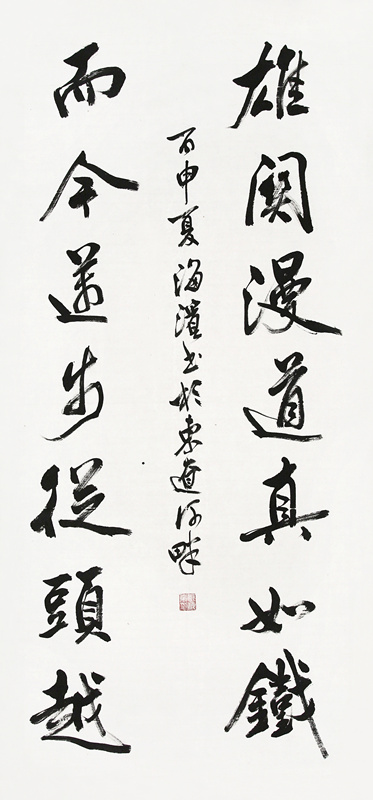 雄關漫道真如鐵
而今邁步從頭越
丙申夏海濱书於東遼河畔